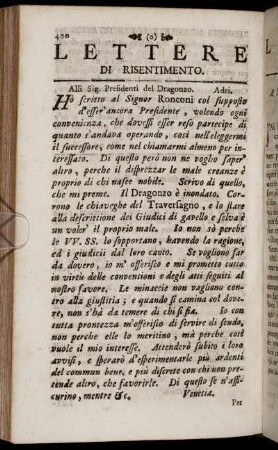 400 (o)
LETTERE
DI RISENTIMENTO.
Alli Sig. Presidenti del Dragonzo. Adri.
HO scritto al Signor Ronconi col supposto
d'esser'ancora Presidente, volendo ogni
convenienza, che dovessi esser reso partecipe di
quanto s'andava operando, così nell'eleggermi
il successore, come nel chiamarmi almeno per in-
teressato. Di questo però non ne voglio saper'
altro, perche il disprezzar le male creanze è
proprio di chi nasce nobile. Scrivo di quello,
che mi preme. I Dragonzo è inondato. Cor-
rono le chiaveghe del Traversagno, e lo stare
alla descrittione dei Giudici di gavello e selva è
un voler il proprio male. Io non sò perche
le VV. SS. lo sopportano, havendo la ragione,
ed i giudicii dal loro canto. Se vogliono far
da dovero, io m'offerisco e mi prometto tutto
in virtù delle conventioni e degli atti seguiti al
nostro favore. Le minaccie non vagliono con-
tro alla giustitia; e quando si camina col dove-
re, non s'hà da temere di chi si sia. Io con
tutta prontezza m'offerisco di servire di scudo,
non perche elle lo meritino, mà perche così
vuole il mio interesse. Attenderò subito i loro
avvisi, e sperarò d'esperimentarle più ardenti
del commun bene, e più discrete con chi non pre-
tende altro, che favorirle. Di questo se n'assi-
curino, mentre &c. Venetia.
Per